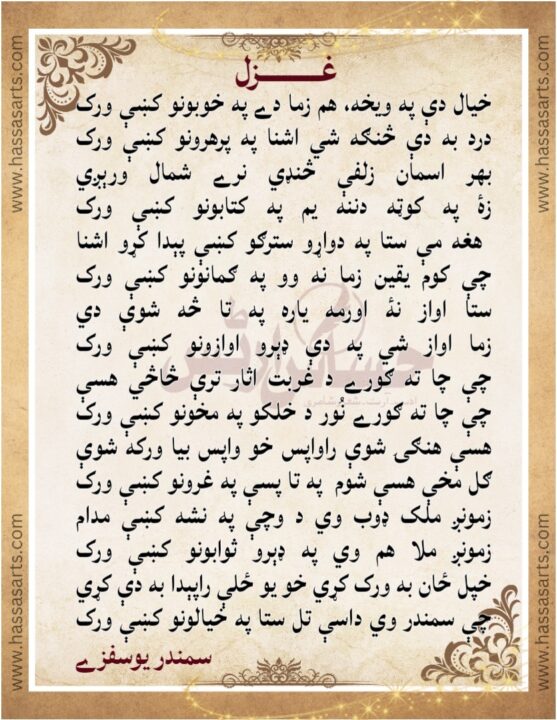 غـــــزل
خيال دې په ويخه، هم زما دے په خوبونو کښې ورک
درد به دې څنګه شي اشنا په پرهرونو کښې ورک
بهر اسمان زلفې څنډي نرے شمال ورېږي
زۀ په کوټه دننه يم په کتابونو کښې ورک
هغه مې ستا په دواړو سترګو کښې پېدا کړو اشنا
چې کوم يقين زما نه وو په ګمانونو کښې ورک
ستا اواز نۀ اورمه ياره په تا څه شوې دي
زما اواز شي په دې ډېرو اوازونو کښې ورک
چې چا ته ګورے د غربت اثار ترې څاڅي هسې
چې چا ته ګورے نُور د خلکو په مخونو کښې ورک
هسې هنګۍ شوې راواپس خو واپس بيا ورکه شوې
ګل مخې هسې شوم په تا پسې په غرونو کښې ورک
زمونږ ملک ډوب وي د وچې په نشه کښې مدام
زمونږ ملا هم وي په ډېرو ثوابونو کښې ورک
خپل ځان به ورک کړي خو يو ځلې راپېدا به دې کړي
چې سمندر وي داسې تل ستا په خيالونو کښې ورک
سمندر يوسفزے
حساس آرٹس
www.hassasarts.com
www.hassasarts.com
www.hassasarts.com
www.hassasarts.com